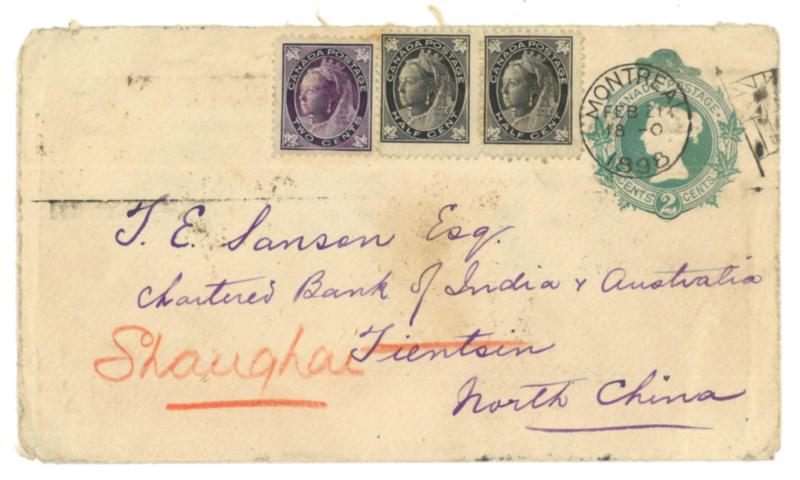 CANADA POSTAGE
TWO CENTS
CANADA POSTAGE
HALF CENT
CANADA POSTAGE
HALF CENT
CANADA POSTAGE
CENTS 2 CENTS
MONTREAL
FEB 21
18 - 0
1898
T. E. Sanson Esq.
Chartered Bank of India & Australia
Shanghai Tientsin
North China